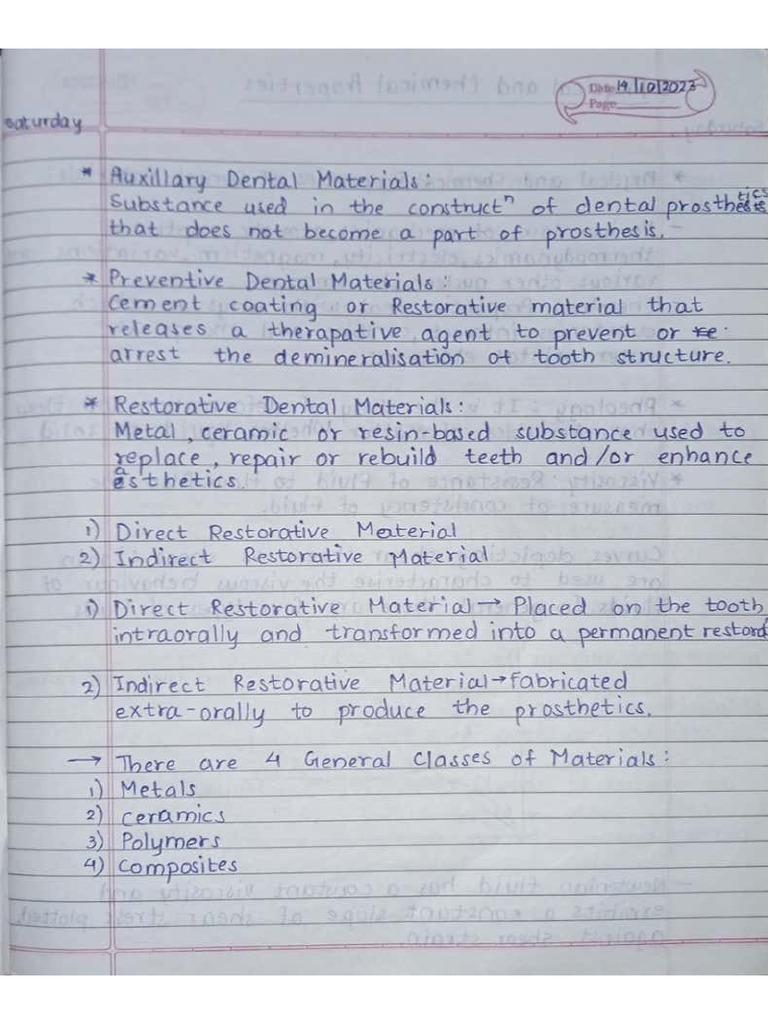 Date 14/10/2023
Page
Saturday
* Auxillary Dental Materials:
Substance used in the constructⁿ of dental prosthetics
that does not become a part of prosthesis.
* Preventive Dental Materials:
Cement coating or Restorative material that
releases a therapative agent to prevent or
arrest the demineralisation of tooth structure.
* Restorative Dental Materials:
Metal, ceramic or resin-based substance used to
replace, repair or rebuild teeth and/or enhance
asthetics.
1) Direct Restorative Material
2) Indirect Restorative Material
1) Direct Restorative Material → Placed on the tooth
intraorally and transformed into a permanent
2) Indirect Restorative Material → Fabricated
extra-orally to produce the prosthetics.
→ There are 4 General Classes of Materials:
1) Metals
2) Ceramics
3) Polymers
4) Composites